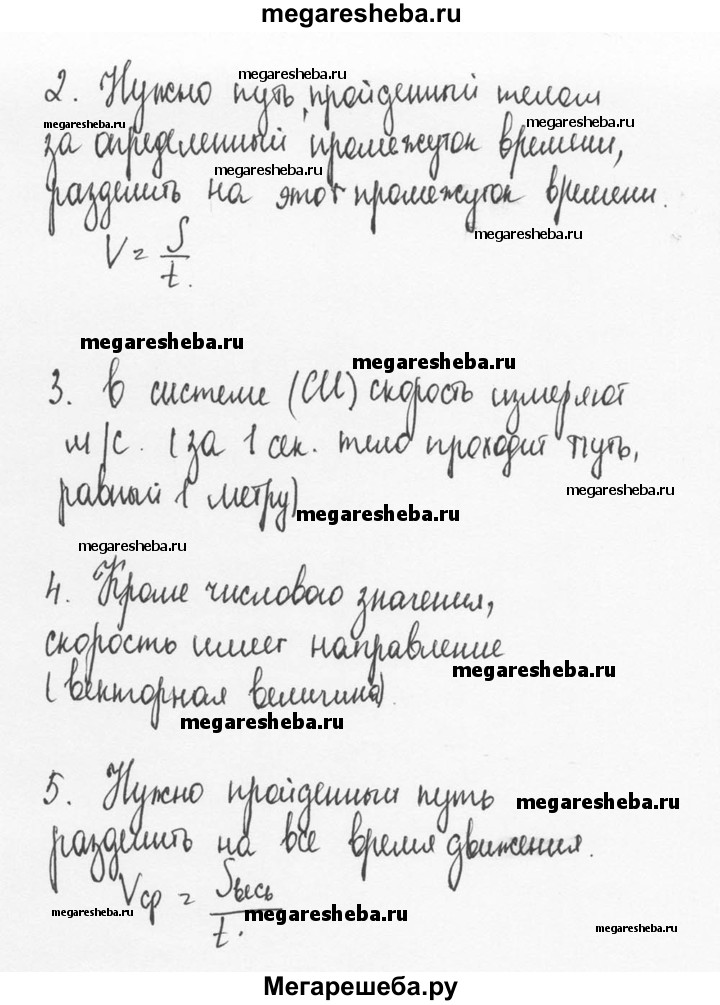 megaresheba.ru
megaresheba.ru
2. Нужно путь, пройденный телом
megaresheba.ru
megaresheba.ru
за определенный промежуток времени,
megaresheba.ru
разделить на этот промежуток времени.
megaresheba.ru
V = S/t.
megaresheba.ru
megaresheba.ru
3. В системе (СИ) скорость измеряют
м/с. (за 1 сек. тело проходит путь,
megaresheba.ru
равный 1 метру)
megaresheba.ru
megaresheba.ru
4. Кроме числового значения,
скорость имеет направление
megaresheba.ru
(векторная величина).
megaresheba.ru
5. Нужно пройденный путь
megaresheba.ru
разделить на все время движения.
Vср = Sвесь/t.
megaresheba.ru
megaresheba.ru
megaresheba.ru
Мегарешеба.ру